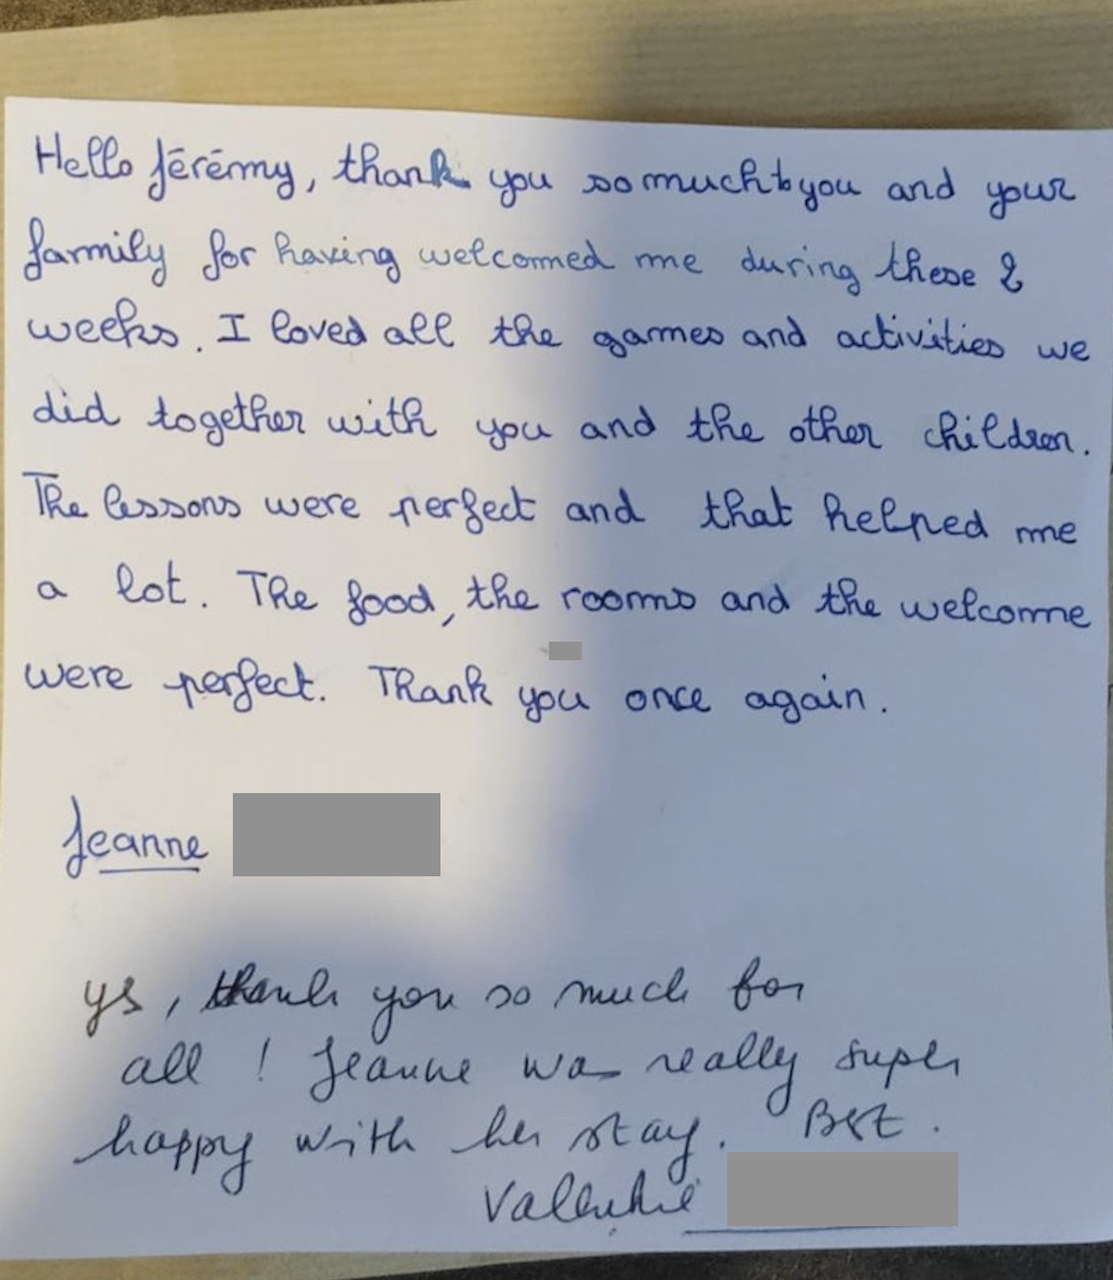 Hello Jérémy, thank you so much to you and your
family for having welcomed me during these 2
weeks. I loved all the games and activities we
did together with you and the other children.
The lessons were perfect and that helped me
a lot. The food, the rooms and the welcome
were perfect. Thank you once again.
Jeanne
ys, thank you so much for
all ! Jeanne was really super
happy with her stay. Best.
Valentine